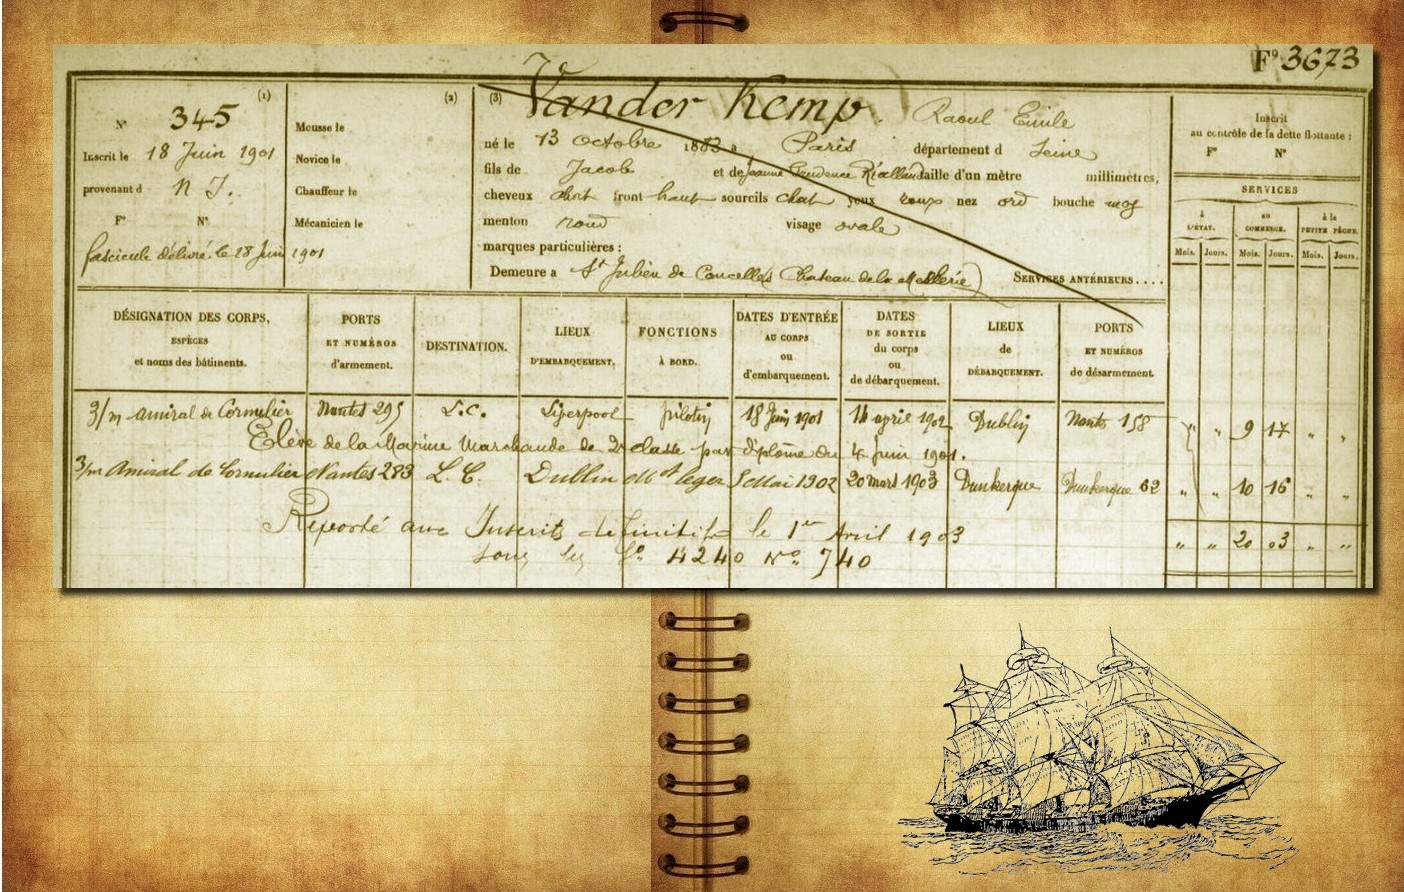 F° 3673
(1)
N° 345
Inscrit le 18 Juin 1901
provenant d N I.
F° N°
fascicule délivré le 18 Juin 1901
(2)
Mousse le
Novice le
Chauffeur le
Mécanicien le
(3) Vander Kemp. Raoul Emile
né le 13 octobre 1883 a Paris département d Seine
fils de Jacob et de Jeanne taille d'un mètre millimètres,
cheveux chat front haut sourcils chat yeux roux nez ord bouche moy
menton rond visage ovale
marques particulières :
Demeure a St Julien de Concelles (Chateau de la Mellerie) Services antérieurs....
Inscrit
au contrôle de la dette flottante :
F° N°
SERVICES
à L'ÉTAT. au COMMERCE. à la PETITE PÊCHE.
Mois. Jours. Mois. Jours. Mois. Jours.
DÉSIGNATION DES CORPS, ESPÈCES et noms des bâtiments.
PORTS ET NUMÉROS d'armement.
DESTINATION.
LIEUX D'EMBARQUEMENT.
FONCTIONS À BORD.
DATES D'ENTRÉE AU CORPS ou d'embarquement.
DATES DE SORTIE du corps ou de débarquement.
LIEUX de DÉBARQUEMENT.
PORTS ET NUMÉROS de désarmement.
3/m amiral de Cornulier Nantes 295 L.C. Liverpool pilotin 18 Juin 1901 14 april 1902 Dublin Nantes 158 " " 9 17 " "
Elève de la Marine Marchande de 2e classe par diplome du 4 Juin 1901.
3/m Amiral de Cornulier Nantes 283 L. C. Dublin Mot leger 5 Mai 1902 20 mars 1903 Dunkerque Dunkerque 62 " " 10 16 " "
Reporté aux Inscrits définitifs le 1er Avril 1903 " " 20 03 " "
sous les F° 4240 N° 740